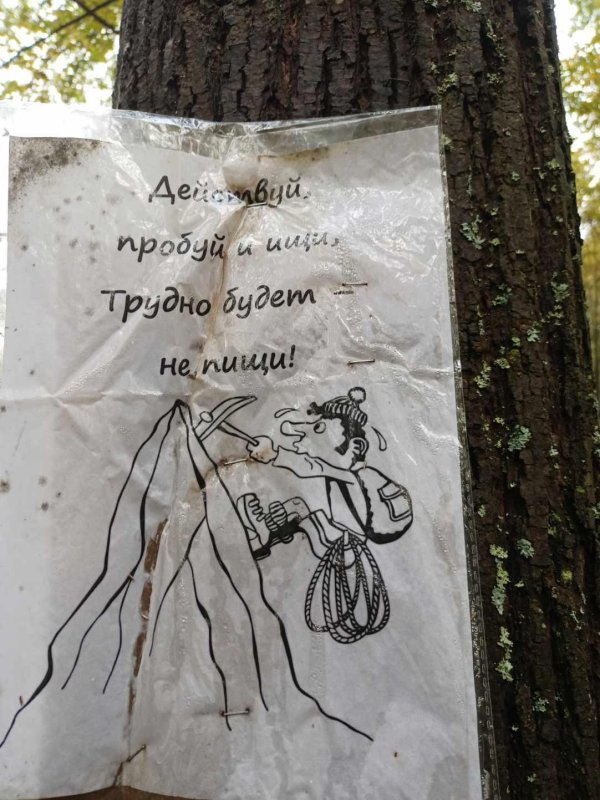 Действуй,
пробуй и ищи,
Трудно будет
не пищи!